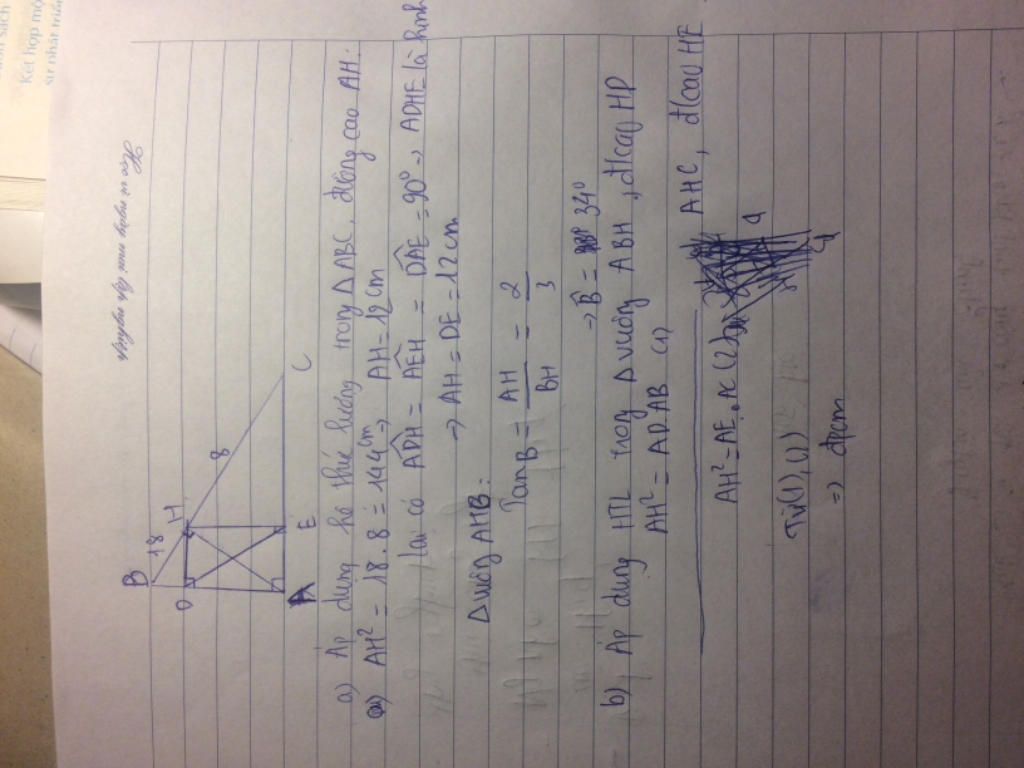 sách
Kết hợp mộ
sự phát triển
Học vì ngày mai lập nghiệp
B 18 H 8 C
D
A E
a) Áp dụng hệ thức lượng trong ΔABC, đường cao AH:
AH² = 18.8 = 144cm → AH = 12cm
lại có ADH = AEH = DAE = 90° → ADHE là hình
→ AH = DE = 12cm
Δ vuông AHB:
Tan B = AH/BH = 2/3
→ B = 34°
b) Áp dụng HTL trog Δ vuông ABH, đcao HD
AH² = AD.AB (1)
AHC, đcao HE
AH² = AE.AC (2)
Từ (1), (2)
=> đpcm